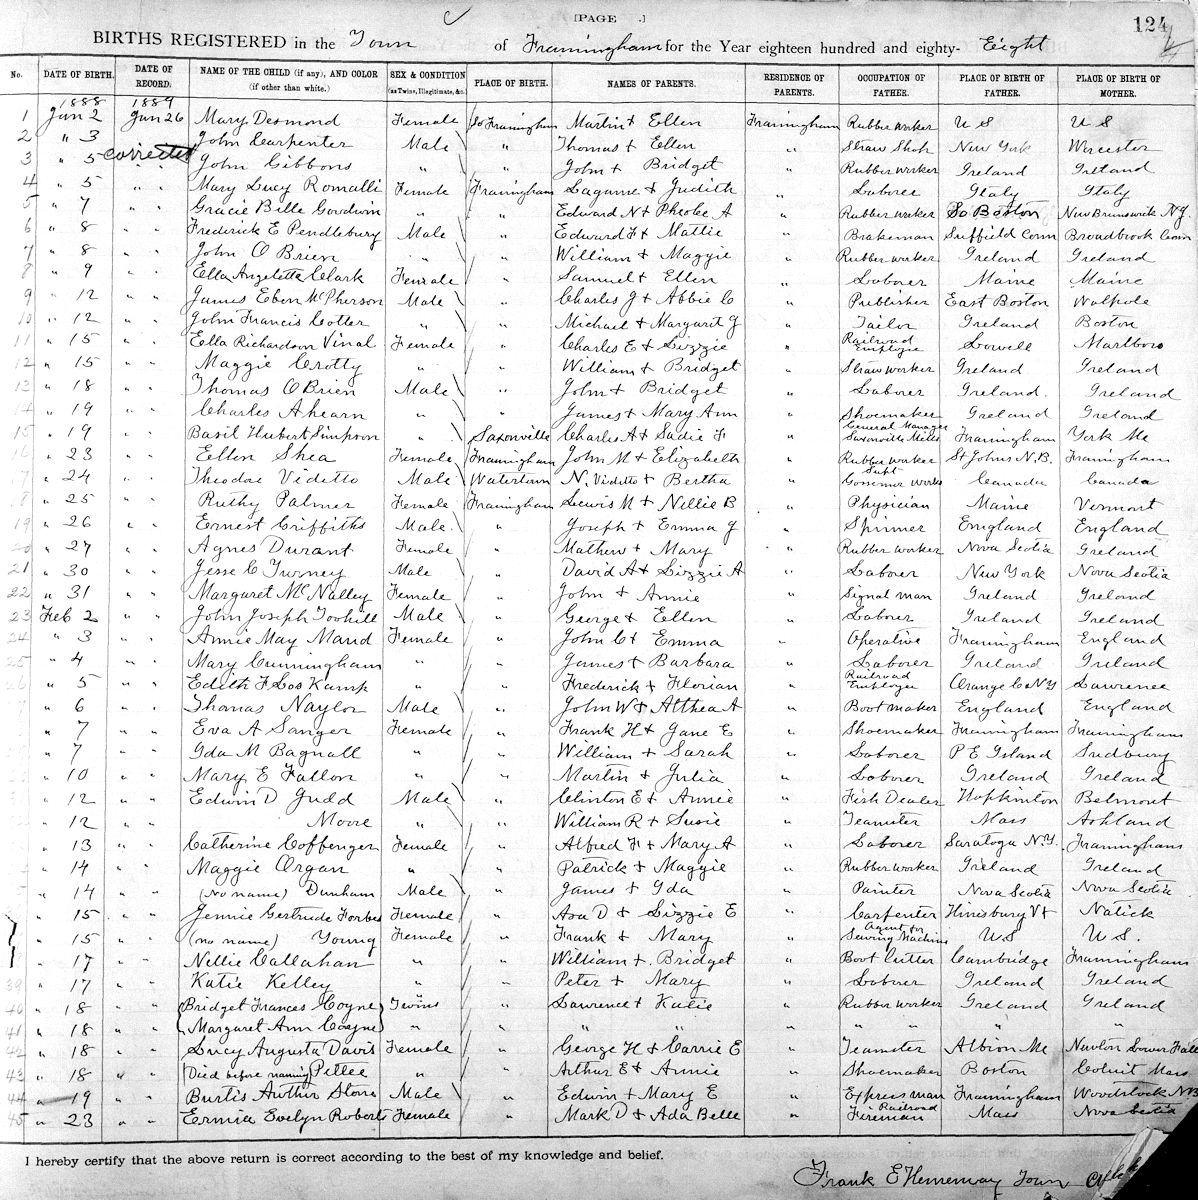 [PAGE .]
124
BIRTHS REGISTERED in the Town of Framingham for the Year eighteen hundred and eighty- Eight
No. DATE OF BIRTH. DATE OF RECORD. NAME OF THE CHILD (if any), AND COLOR (if other than white.) SEX & CONDITION (as Twins, Illegitimate, &c.) PLACE OF BIRTH. NAMES OF PARENTS. RESIDENCE OF PARENTS. OCCUPATION OF FATHER. PLACE OF BIRTH OF FATHER. PLACE OF BIRTH OF MOTHER.
1888 1889
1 Jan 2 Jan 26 Mary Desmond Female So Framingham Martin & Ellen Framingham Rubber worker U S U S
2 " 3 corrected John Carpenter Male " Thomas & Ellen " Straw Shop New York Worcester
3 " 5 " " John Gibbons " John & Bridget " Rubber worker Ireland Ireland
4 " 5 " " Mary Lucy Romalli Female Framingham & Judith " Laborer Italy Italy
5 " 7 " " Gracie Bille Goodwin " " Edward N & Pheobe A " Rubber worker So Boston New Brunswick NJ
6 " 8 " " Frederick E Pendlebury Male " Edward F & Mattie " Brakeman Suffield Conn Broadbrook Conn
7 " 8 " " John O Brien " " William & Maggie " Rubber worker Ireland Ireland
8 " 9 " " Ella Angeletta Clark Female " Samuel & Ellen " Laborer Maine Maine
9 " 12 " " James Eben McPherson Male " Charles J & Abbie C " Publisher East Boston Walpole
10 " 12 " " John Francis Cotter " " Michael & Margaret J " Tailor Ireland Boston
11 " 15 " " Ella Richardson Vinal Female " Charles E & Lizzie " Railroad Employee Lowell Marlboro
12 " 15 " " Maggie Crotty " " William & Bridget " Straw worker Ireland Ireland
13 " 18 " " Thomas O Brien Male " John & Bridget " Laborer Ireland Ireland
14 " 19 " " Charles Ahearn " " James & Mary Ann " Shoemaker Ireland Ireland
15 " 19 " " Basil Hubert Simpson " Saxonville Charles A & Sadie F " General Manager Saxonville Mills Framingham York Me
16 " 23 " " Ellen Shea Female Framingham John M & Elizabeth " Rubber worker St Johns N.B. Framingham
" 24 " " Theodore Videtto Male Watertown N. Videtto & Bertha " Supt Gossomer works Canada Canada
8 " 25 " " Ruthy Palmer Female Framingham Lewis M & Nellie B " Physician Maine Vermont
19 " 26 " " Ernest Griffiths Male " Joseph & Emma J " Spinner England England
20 " 27 " " Agnes Durant Female " Mathew & Mary " Rubber worker Nova Scotia Ireland
21 " 30 " " Jesse C Turney Male " David A & Lizzie A " Laborer New York Nova Scotia
22 " 31 " " Margaret McNalley Female " John & Annie " Signal man Ireland Ireland
23 Feb 2 " " John Joseph Toohill Male " George & Ellen " Laborer Ireland Ireland
24 " 3 " " Annie May Maud Female " John C & Emma " Operative Framingham England
25 " 4 " " Mary Cunningham " " James & Barbara " Laborer Ireland Ireland
26 " 5 " " Edith F Los Kamp " " Frederick & Florian " Railroad Employee Orange Co NY Lawrence
" 6 " " Thomas Naylor Male " John W & Althea A " Boot maker England England
" 7 " " Eva A Sanger Female " Frank H & Jane E " Shoemaker Framingham Framingham
" 7 " " Ida M Bagnall " " William & Sarah " Laborer P E Island Sudbury
" 10 " " Mary E Fallon " " Martin & Julia " Laborer Ireland Ireland
" 12 " " Edwin D Judd Male " Clinton E & Annie " Fish Dealer Hopkinton Belmont
" 12 " " Moore " " William R & Susie " Teamster Mass Ashland
" 13 " " Catherine Coffenger Female " Alfred F & Mary A " Laborer Saratoga N.Y. Framingham
" 14 " " Maggie Organ " " Patrick & Maggie " Rubber worker Ireland Ireland
" 14 " " (No name) Dunham Male " James & Ida " Painter Nova Scotia Nova Scotia
" 15 " " Jennie Gertrude Forbes Female " Asa D & Lizzie E " Carpenter Hinisburg Vt Natick
" 15 " " (no name) Young Female " Frank & Mary " Agent for Sewing Machine U S U S.
" 17 " " Nellie Callahan " " William & Bridget " Boot Cutter Cambridge Framingham
39 " 17 " " Katie Kelley " " Peter & Mary " Laborer Ireland Ireland
40 " 18 " " Bridget Frances Coyne Twins " Lawrence & Katie " Rubber worker Ireland Ireland
41 " 18 " " Margaret Ann Coyne " " " " " " " "
42 " 18 " " Lucy Augusta Davis Female " George H & Carrie E " Teamster Albion Me Newton Lower Fall
43 " 18 " " Died before naming Pellee " " Arthur E & Annie " Shoemaker Boston Cotuit Mass
44 " 19 " " Burtis Arthur Stone Male " Edwin & Mary E " Expressman Framingham Woodstock NB
45 " 23 " " Ermia Evelyn Roberts Female " Mark D & Ada Belle " Railroad Fireman Mass Nova Scotia
I hereby certify that the above return is correct according to the best of my knowledge and belief.
Frank E Hemenway Town Clerk